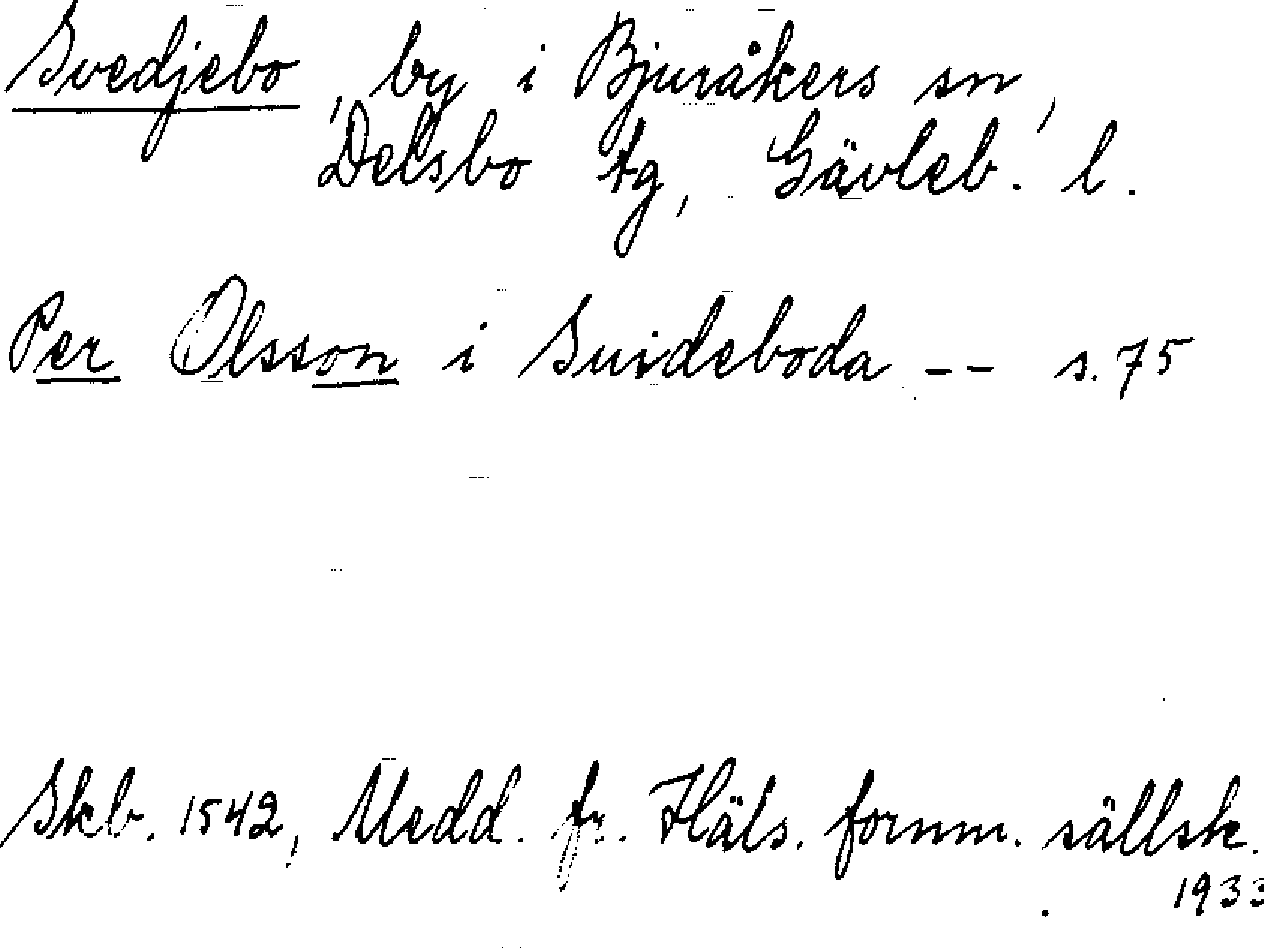 Svedjebo, by i Bjuråkers sn,
Delsbo tg, Gävleb. l.
Per Olsson i Suideboda -- s. 75
Skb. 1542, Medd. fr. Häls. fornm. sällsk.
1933